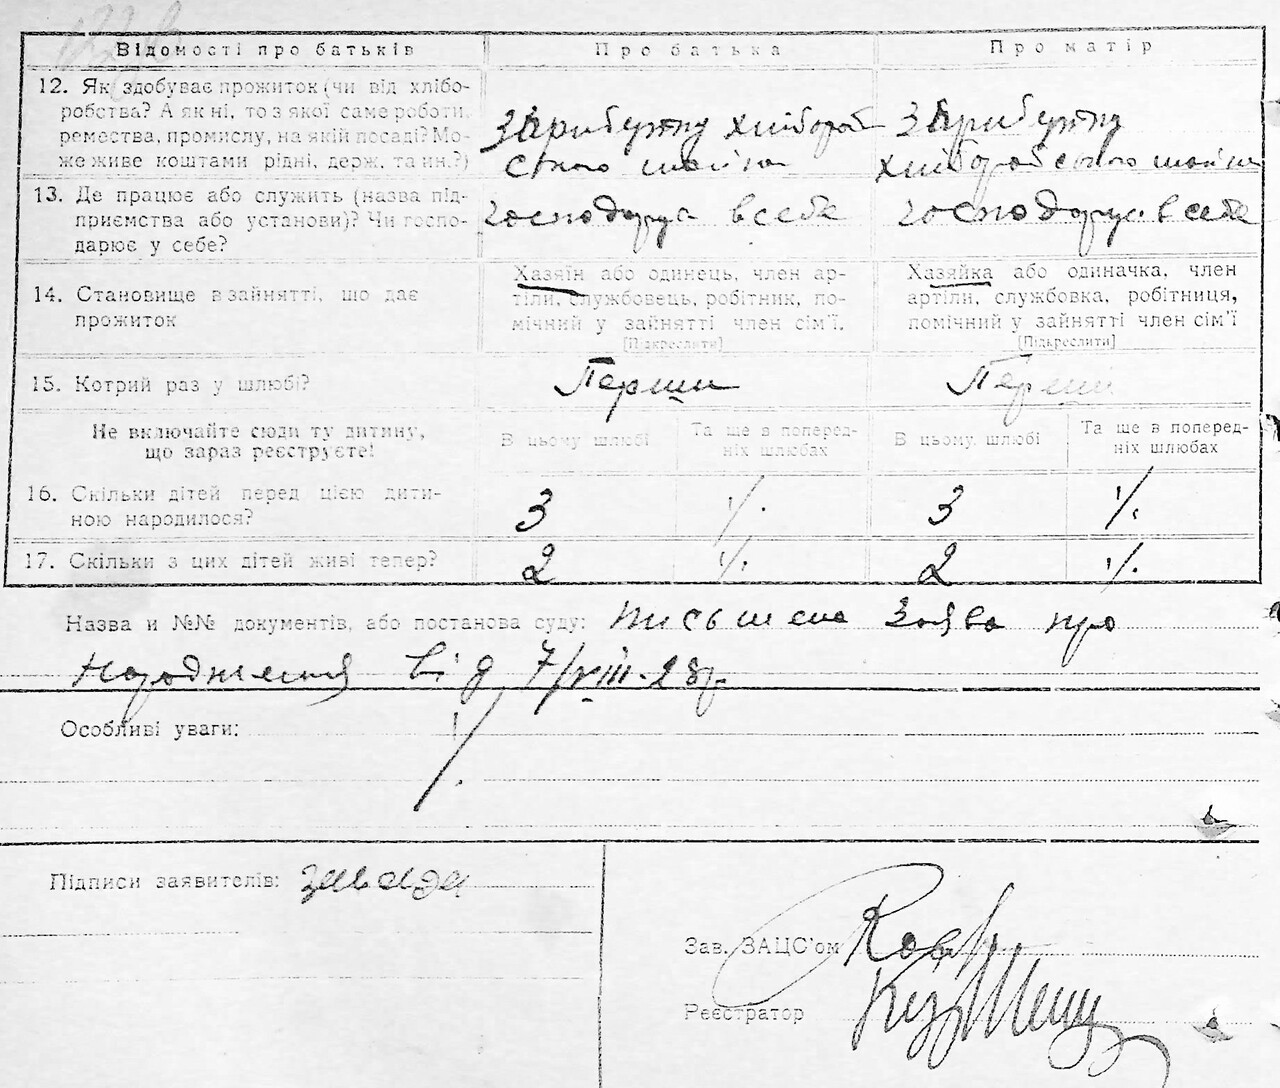 Відомості про батьків
Про батька
Про матір
12. Як здобуває прожиток (чи від хлібо-
робства? А як ні, то з якої саме роботи,
ремества, промислу, на якій посаді? Мо-
же живе коштами рідні, держ. та ин.?)
прибутку хлібороб
свого майна
прибутку
хлібороб свого майна
13. Де працює або служить (назва під-
приємства або установи)? Чи госпо-
дарює у себе?
господарує в себе
господарує в себе
14. Становище в зайнятті, що дає
прожиток
Хазяїн або одинець, член ар-
тілі, службовець, робітник, по-
мічний у зайнятті член сім'ї.
[Підкреслити]
Хазяйка або одиначка, член
артіли, службовка, робітниця,
помічний у зайнятті член сім'ї
[Підкреслити]
15. Котрий раз у шлюбі?
Перший
Перший
Не включайте сюди ту дитину,
що зараз реєструєте!
В цьому шлюбі
Та ще в поперед-
ніх шлюбах
В цьому шлюбі
Та ще в поперед-
ніх шлюбах
16. Скільки дітей перед цією дити-
ною народилося?
3
3
17. Скільки з цих дітей живі тепер?
2
2
Назва и №№ документів, або постанова суду: письмена заява про
народження від 7/VIII-28р.
Особливі уваги:
Підписи заявителів: завада
Зав. ЗАЦС'ом
Реєстратор